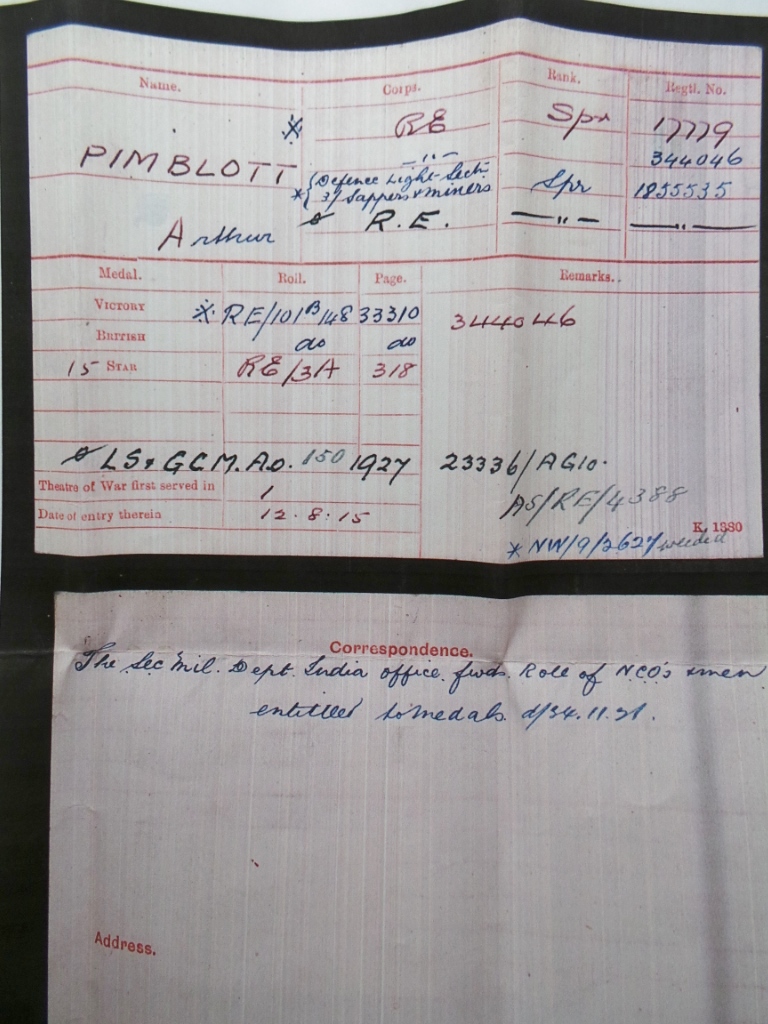 Name. Corps. Rank. Regtl. No.
RE Spr 17779
—"— 344046
PIMBLOTT {Defence Light Sectn
3/ Sappers & miners Spr 1855535
Arthur R.E. —"— —"—
Medal. Roll. Page. Remarks.
VICTORY RE/101B/148 33310 344046
BRITISH do do
15 STAR RE/3A 318
LS & GCM. Ao. 150 1927 23336/AG10.
Theatre of War first served in 1 AS/RE/4388
Date of entry therein 12.8.15
K. 1380
* NW/9/2627 weeded
Correspondence.
The Sec Mil. Dept. India office fwds. Role of NCO's & men
entitled to medals
Address.